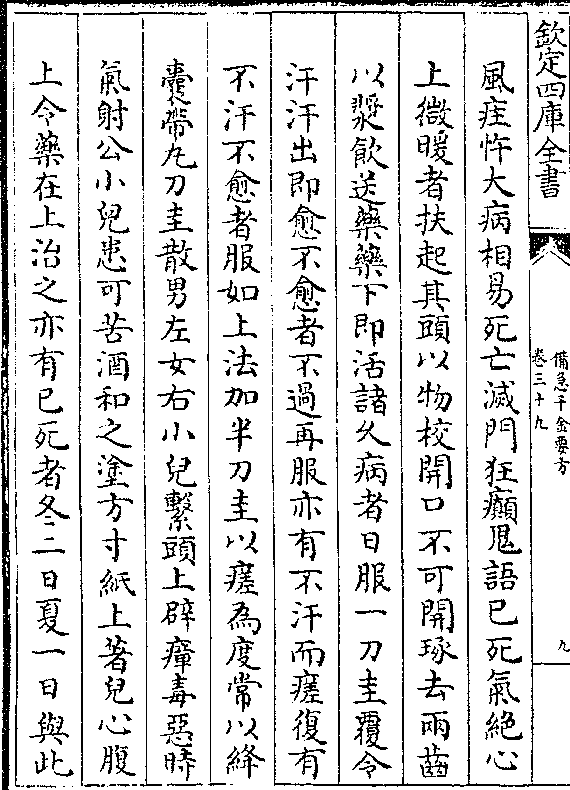 欽定四庫全書
備急千金要方
卷三十九
九
風疰忤大病相易死亡滅門狂癲鬼語已死氣絶心
上微暖者扶起其頭以物校開口不可開琢去兩齒
以漿飲送藥藥下即活諸久病者日服一刀圭覆令
汗汗出即愈不愈者不過再服亦有不汗而瘥復有
不汗不愈者服如上法加半刀圭以瘥為度常以絳
囊帶九刀圭散男左女右小兒繫頭上辟瘴毒惡時
氣射公小兒患可苦酒和之塗方寸紙上著兒心腹
上令藥在上治之亦有已死者冬二日夏一日與此